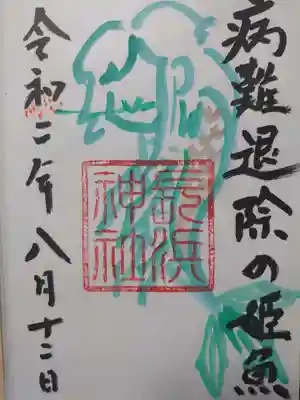 病難退除の姫魚
長浜
神社
令和二年八月十二日